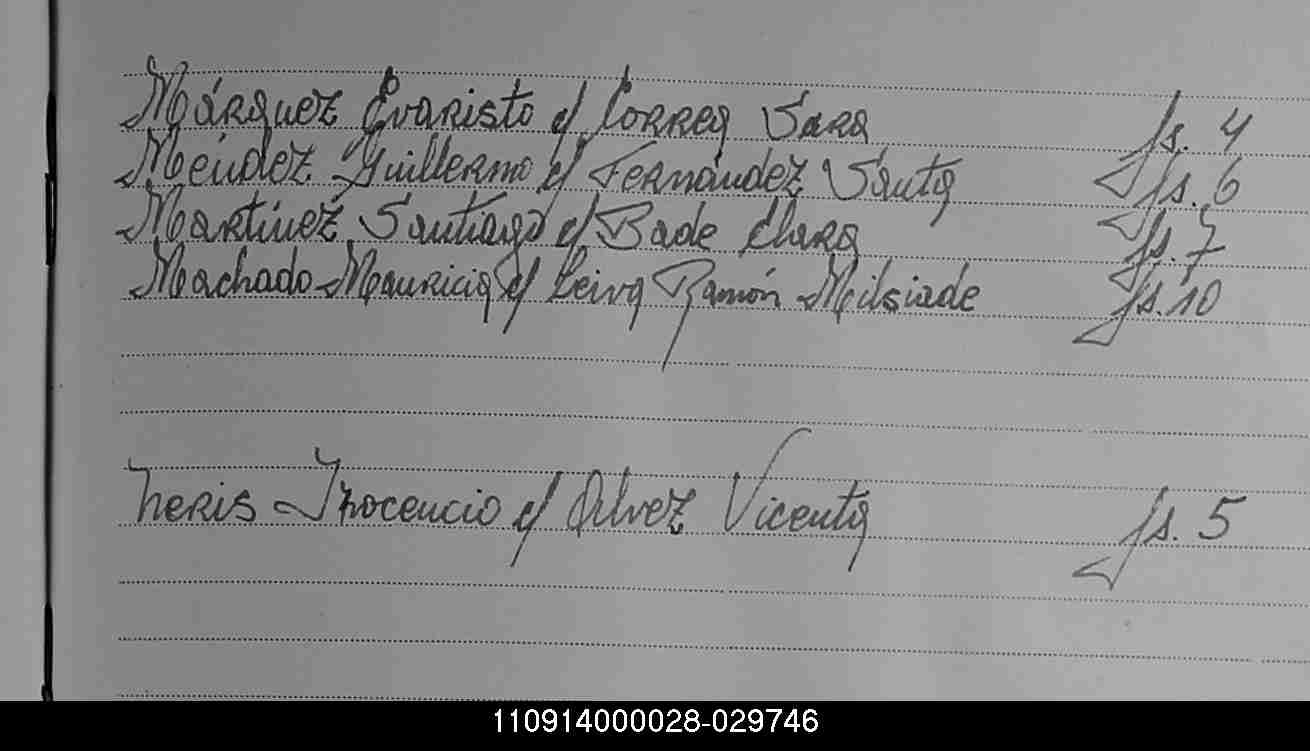 Márquez Evaristo c/ Correa Sara fs. 4
Méndez Guillermo c/ Fernández Santa fs. 6
Martínez Santiago c/ Bade Clara fs. 7
Machado Mauricia c/ Leiva Ramón Milsiade fs. 10
Neris Inocencio c/ Alvez Vicenta fs. 5
110914000028-029746